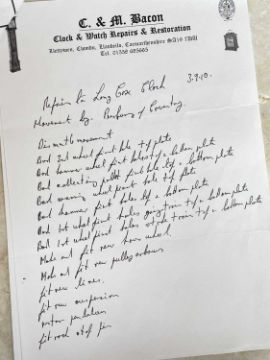 C. & M. Bacon
Clock & Watch Repairs & Restoration
Carmarthenshire SA19
Tel. 01550
Repairs to Long Case Clock 3.9.10.
Movement by of Coventry
Dismantle movement
Bush 3rd wheel pivot hole top plate
Bush hammer wheel pivot holes top & bottom plate
Bush collecting pallet pivot hole top & bottom plate
Bush warning wheel pivot hole top plate
Bush hammer pivot holes top & bottom plate
Bush 1st wheel pivot holes going train top & bottom plate
Bush 1st wheel pivot holes train top & bottom plate
Make and fit new hour wheel
Make and fit new pulley arbours
fit new lines.
fit new suspension
pendulum
fit